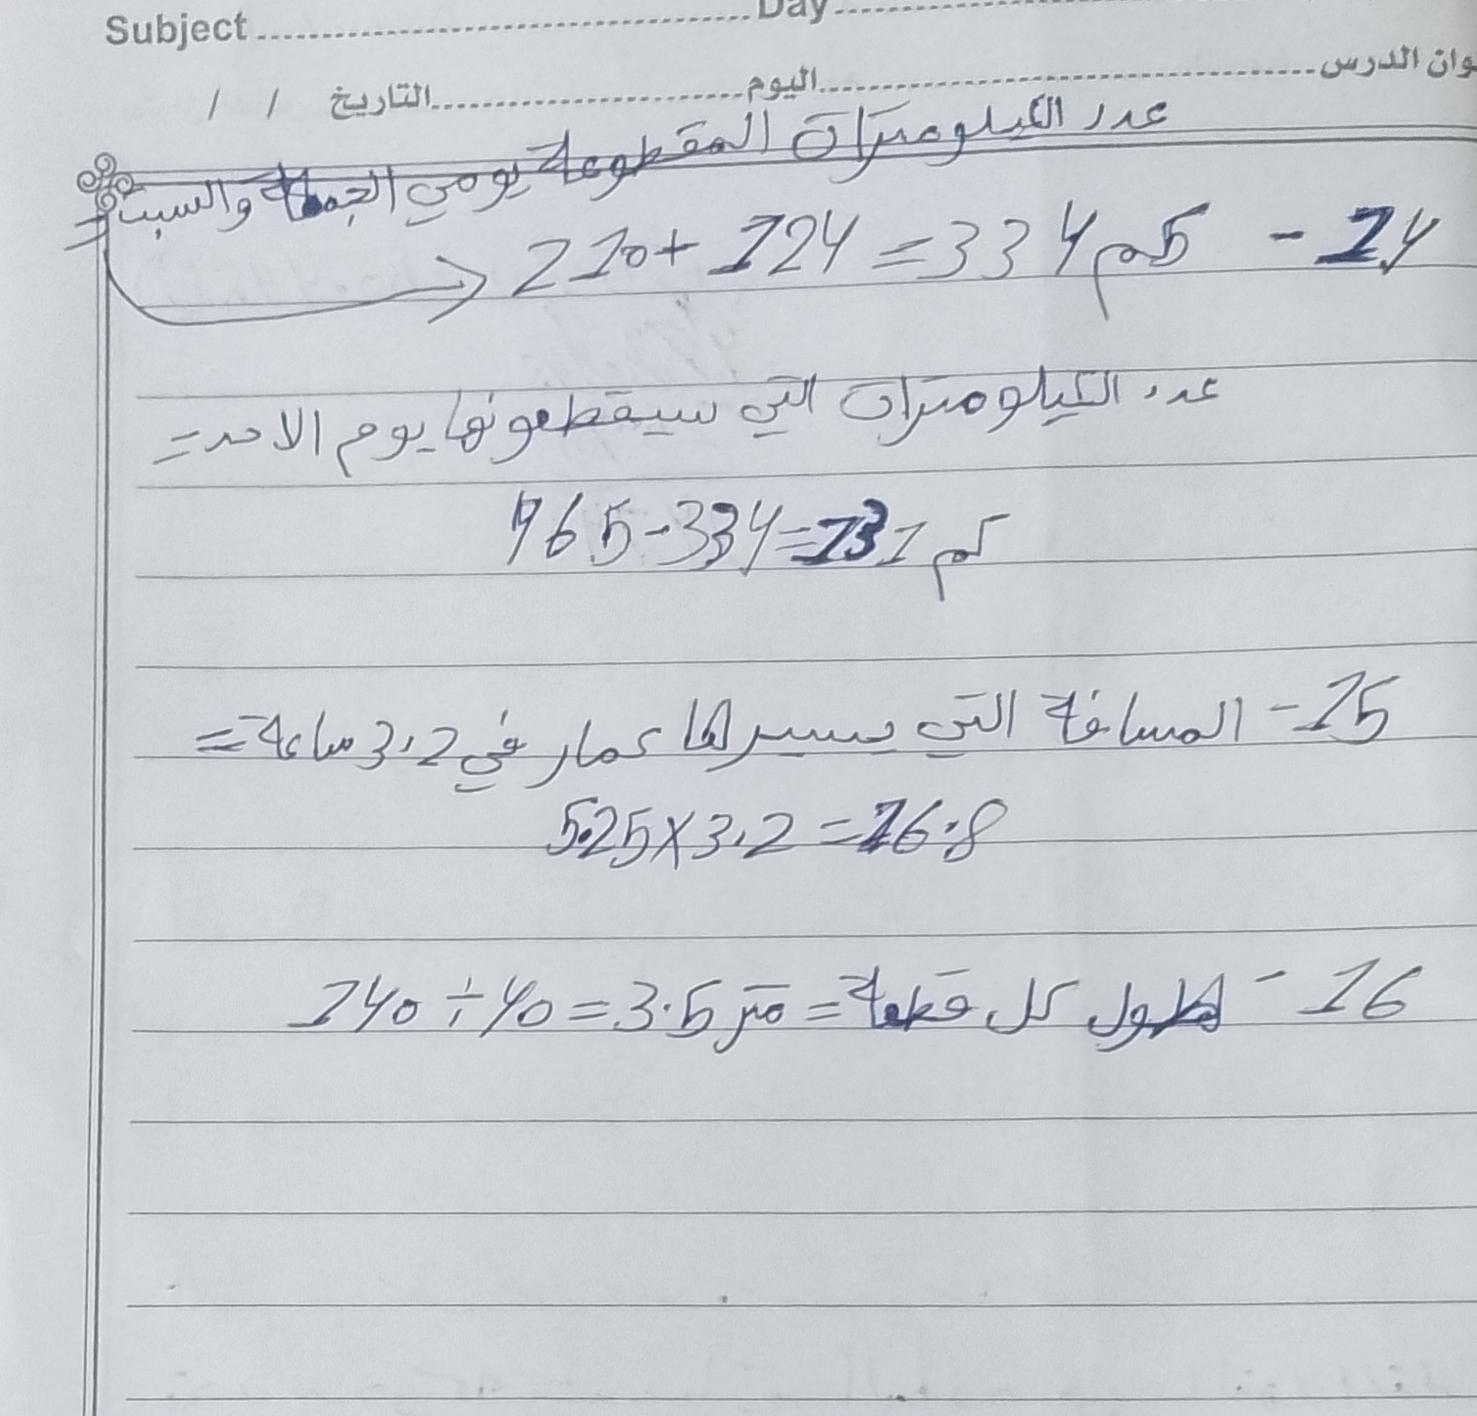 Subject ........ Day ........
وان الدرس ........ اليوم ........ التاريخ / /
عدد الكيلومترات المقطوعة يومي الجمعة والسبت =
14 - 210 + 124 = 334 كم
عدد الكيلومترات التي سيقطعونها يوم الاحد =
465 - 334 = 131 كم
15 - المسافة التي يسيرها عمار في 3.2 ساعة =
5.25 × 3.2 = 16.8
16 - طول كل قطعة = 140 ÷ 40 = 3.5 متر